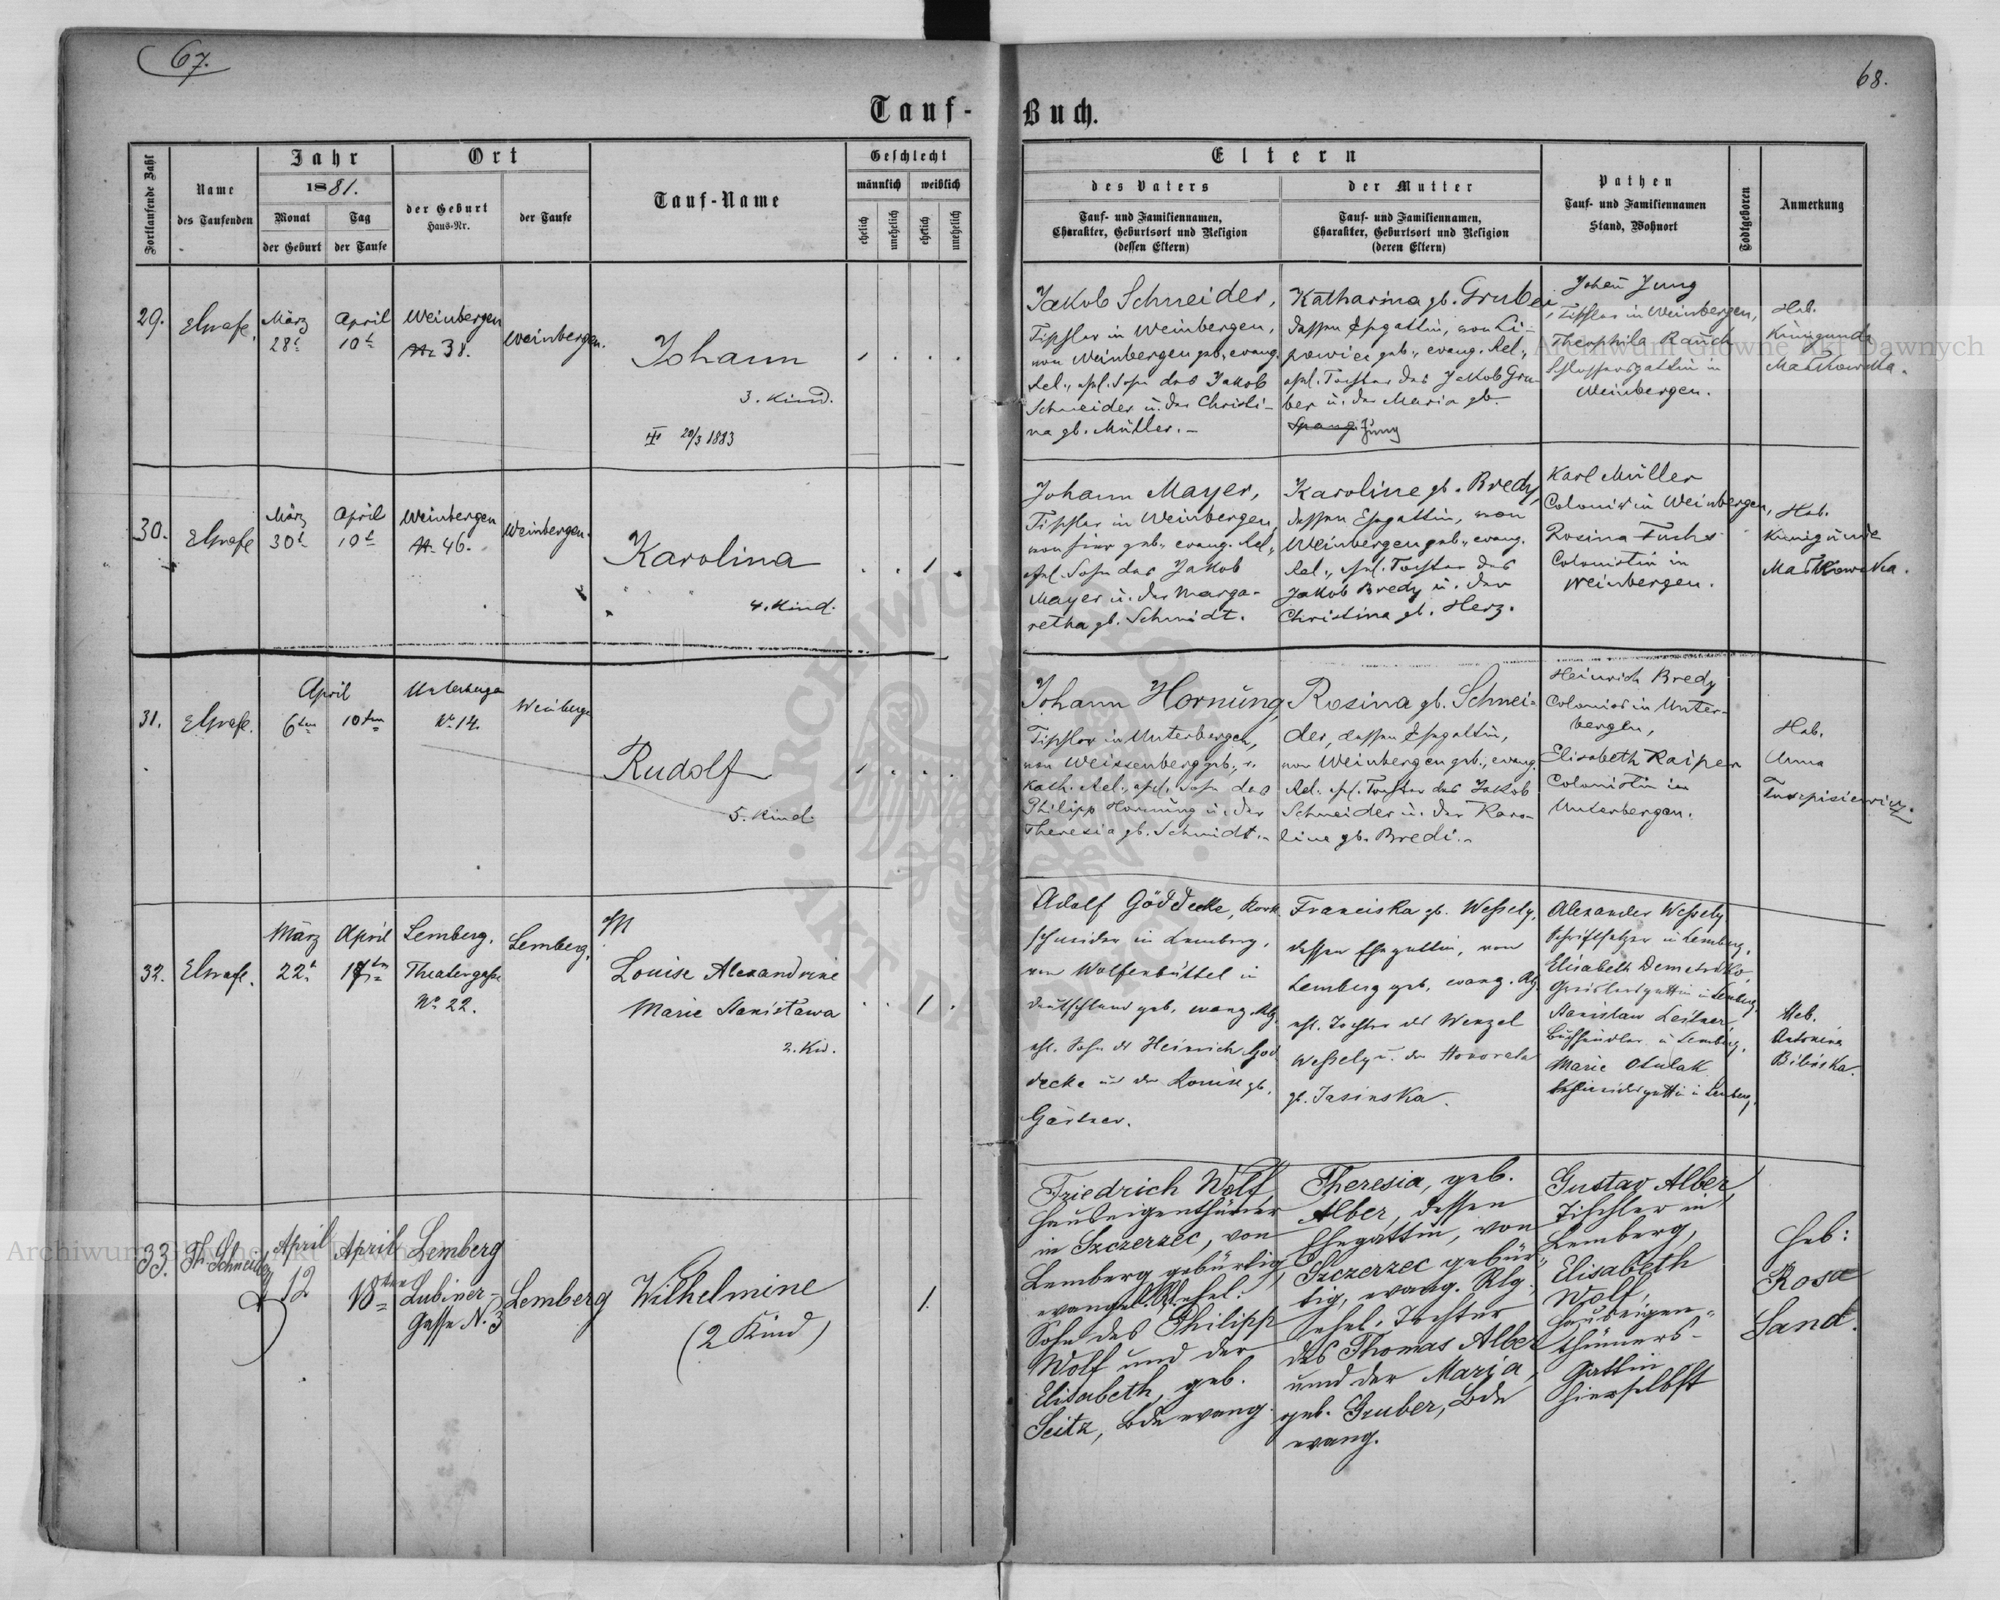 67.
68.
Tauf-
Buch.
Fortlaufende Zahl
Name
des Taufenden
Jahr
1881.
Monat
der Geburt
Tag
der Taufe
Ort
der Geburt
Haus-Nr.
der Taufe
Tauf-Name
Geschlecht
männlich
weiblich
ehelich
unehelich
ehelich
unehelich
Eltern
des Vaters
Tauf- und Familiennamen,
Charakter, Geburtsort und Religion
(dessen Eltern)
der Mutter
Tauf- und Familiennamen,
Charakter, Geburtsort und Religion
(deren Eltern)
Pathen
Tauf- und Familiennamen
Stand, Wohnort
Todtgeboren
Anmerkung
29.
März
28t
April
10t
Weinbergen
38.
Weinbergen.
Johann
3. Kind.
20/3 1883
Jakob Schneider,
Tischler in Weinbergen,
von Weinbergen geb., evang.
Rel., ehel. Sohn des Jakob
Schneider u. der Christi-
na gb. Müller.-
Katharina gb. Gruber,
dessen Ehegattin, von Li-
powiec geb., evang. Rel.,
ehel. Tochter des Jakob Gru-
ber u. der Maria gb.
Jung
Johann Jung
Tischler in Weinbergen,
Theophila Rauch
Schlossersgattin in
Weinbergen.
Heb.
Kunigunde
Maćkowska.
30.
März
30t
April
10t
Weinbergen
46.
Weinbergen.
Karolina
4. Kind.
1
Johann Mayer,
Tischler in Weinbergen,
von hier geb., evang. Rel.,
ehel. Sohn des Jakob
Mayer u. der Marga-
retha gb. Schmidt.
Karoline gb. Bredy,
dessen Ehegattin, von
Weinbergen geb., evang.
Rel., ehel. Tochter des
Jakob Bredy u. der
Christina gb. Herz.
Karl Müller
Colonist in Weinbergen,
Rosina Fuchs
Colonistin in
Weinbergen.
Heb.
Kunigunde
Maćkowska.
31.
April
6ten
10ten
Unterbergen
Nr 14.
Weinbergen
Rudolf
5. Kind.
Johann Hornung,
Tischler in Unterbergen,
von Weissenberg geb., r.
kath. Rel., ehel. Sohn des
Philipp Hornung u. der
Theresia gb. Schmidt.-
Rosina gb. Schnei-
der, dessen Ehegattin,
von Weinbergen geb., evang.
Rel. ehel. Tochter des Jakob
Schneider u. der Karo-
line gb. Bredi.-
Heinrich Bredy
Colonist in Unter-
bergen,
Elisabeth Kaiper
Colonistin in
Unterbergen.
Heb.
Anna
32.
März
22t
April
Lemberg,
Theatergasse
Nr 22.
Lemberg.
Louise Alexandrine
Marie Stanisława
2. Kd.
1
Adolf Göddecke, Kork-
schneider in Lemberg,
von Wolfenbüttel in
Deutschland geb., evang. Rlg.
ehl. Sohn des Heinrich Göd-
decke und der Louise gb.
Gärtner.
Franciska gb. Weßely,
dessen Ehegattin, von
Lemberg geb., evang. Rlg.
ehl. Tochter des Wenzel
Weßely u. der Honorata
gb. Jasinska.
Alexander Weßely
Schriftsetzer in Lemberg,
Elisabeth Demetrko,
in Lemberg,
Stanislaw Leitner,
Buchhändler in Lemberg,
Marie Osulak
Schneidersgattin in Lemberg.
Heb.
Antonina
Bilińska.
33.
Th. Schneider
April
12
April
18ten
Lemberg
Lubiner-
Gasse N. 3
Lemberg
Wilhelmine
(2 Kind)
1.
Friedrich Wolf,
Hauseigenthümer
in Szczerzec, von
Lemberg gebürtig,
evangel. Rl. ehel:
Sohn des Philipp
Wolf und der
Elisabeth, geb.
Seitz, bde evang.
Theresia, geb.
Alber, dessen
Ehegattin, von
Szczerzec gebür-
tig, evang. Rlg.
ehel. Tochter
des Thomas Alber
und der Maria,
geb. Gruber, bde
evang.
Gustav Alber,
Tischler in
Lemberg,
Elisabeth
Wolf,
Hauseigen-
thümers-
Gattin
hierselbst
Heb:
Rosa
Sand.
Archiwum Główne Akt Dawnych
Archiwum Główne Akt Dawnych